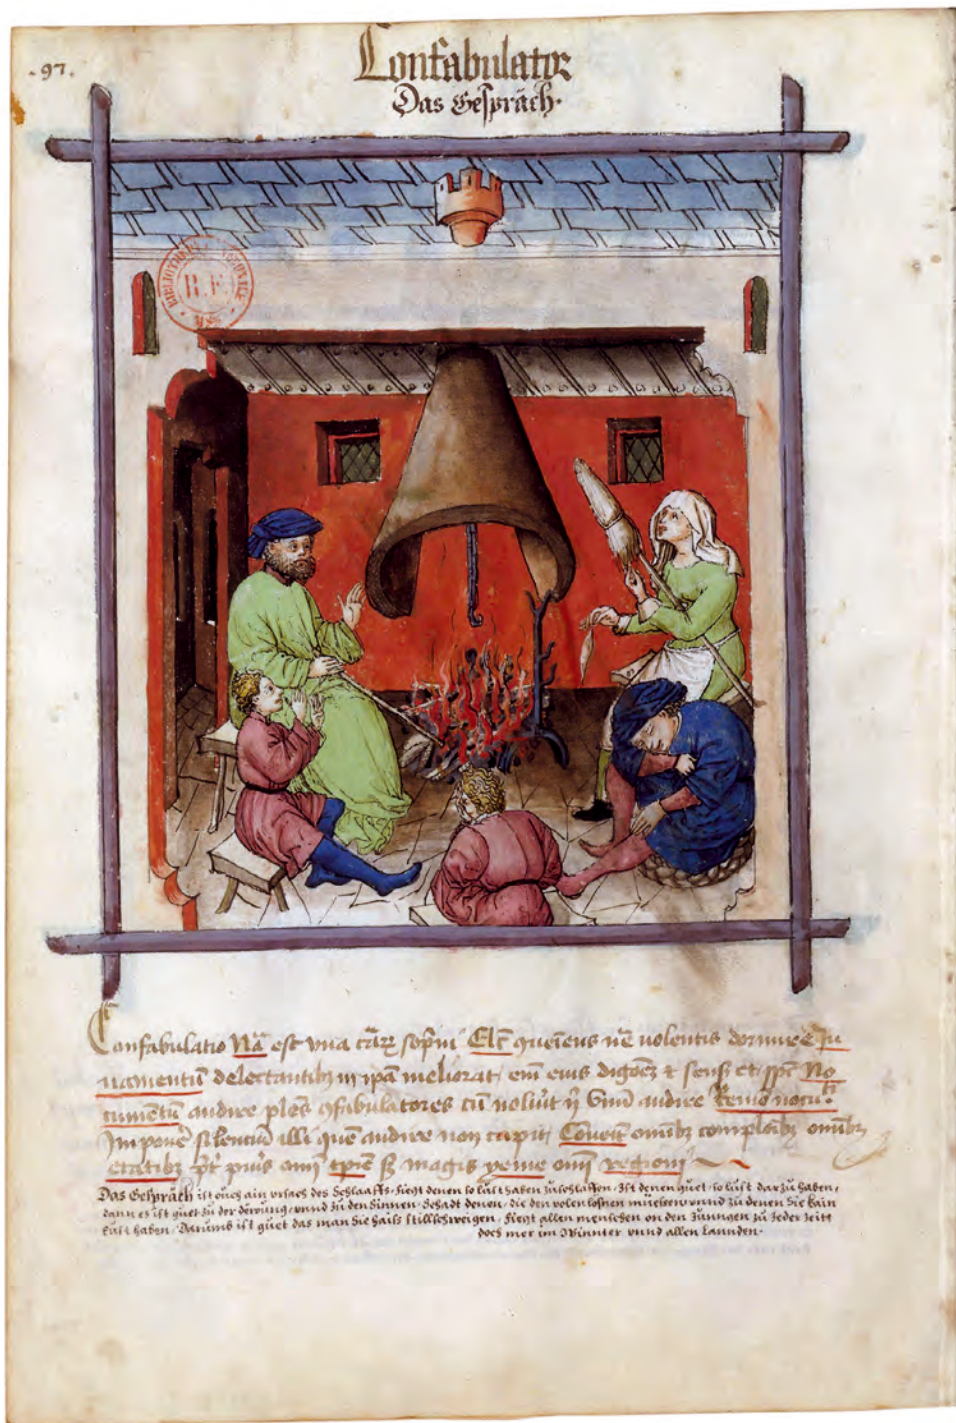 ·97·
Confabulator
Das Gespräch·
BIBLIOTHEQUE
R.F.
Confabulatio Nā est vna cārx sopni Elc̄ 9ueiens nē uolentis dormire Ju
uamentū delectantibꝫ in ipā meliorat eīn eius digōeꝫ ⁊ senꝫ et sp̄c No
cumentū audire plēs 9fabulatores cū noliūt ñ vnū audire Remo nocūti
Imponē silenciū illi quē audire non cupit Coueīt oīnībꝫ compleībꝫ oīnībꝫ
etatibꝫ p̄t pūis oīnī tp̄re sꝫ magis yeme oīnī regioni
Das Gespräch ist ouch ain vrsach des Schlaaffs, fiegt denen so lust haben zuschlaffen, Ist denen guet, so lust darzu haben,
dann es ist guet zu der dewung, vnnd zu den Sinnen, Schadt denen, die den volen losnen mueßen, vnnd zu denen Sie kain
lust haben, Darumb ist guet das man Sie haiß stillschweigen, fiegt allen menschen on den Jungen zu jeder zeitt
doch mer im Winnter vnnd allen Lannden·